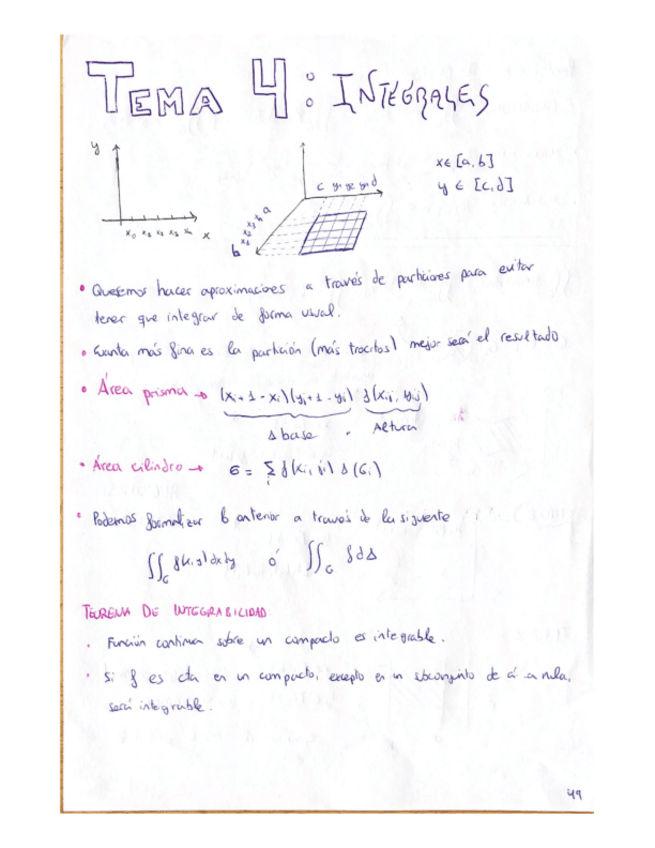 TEMA 4: INTEGRALES
y
x₀ x₁ x₂ x₃ x₄ x
c y₁ y₂ y₃ d
a
b
x ∈ [a, b]
y ∈ [c, d]
• Queremos hacer aproximaciones a través de particiones para evitar
tener que integrar de forma usual.
• Cuanta más fina es la partición (más trocitos) mejor será el resultado
• Área prisma → (xᵢ+1 - xᵢ)(yⱼ+1 - yⱼ) f(xᵢⱼ, yᵢⱼ)
base . Altura
• Área cilindro →
• Podemos formalizar lo anterior a través de la siguiente
∬_G f(x,y) dx dy ó ∬_G f dA
TEOREMA DE INTEGRABILIDAD
· Función continua sobre un compacto es integrable.
· Si f es cta en un compacto, excepto en un subconjunto de nula,
será integrable.
49